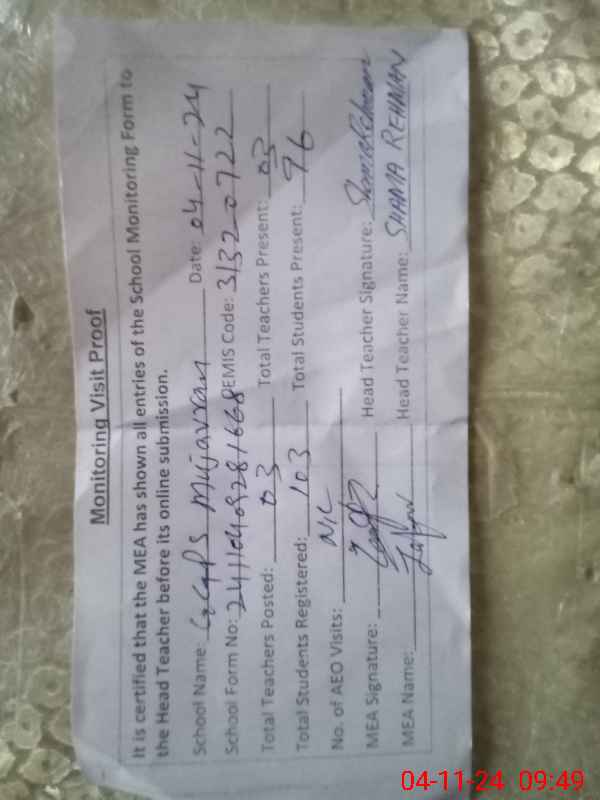 Monitoring Visit Proof
It is certified that the MEA has shown all entries of the School Monitoring Form to
the Head Teacher before its online submission.
School Name: GGPS Mujavran Date: 04-11-24
School Form No: 241104093281668 EMIS Code: 31320722
Total Teachers Posted: 03 Total Teachers Present: 03
Total Students Registered: 103 Total Students Present: 96
No. of AEO Visits: NIL
MEA Signature: Head Teacher Signature: Shama Rehman
MEA Name: Head Teacher Name: SHAMA REHMAN
04-11-24 09:49